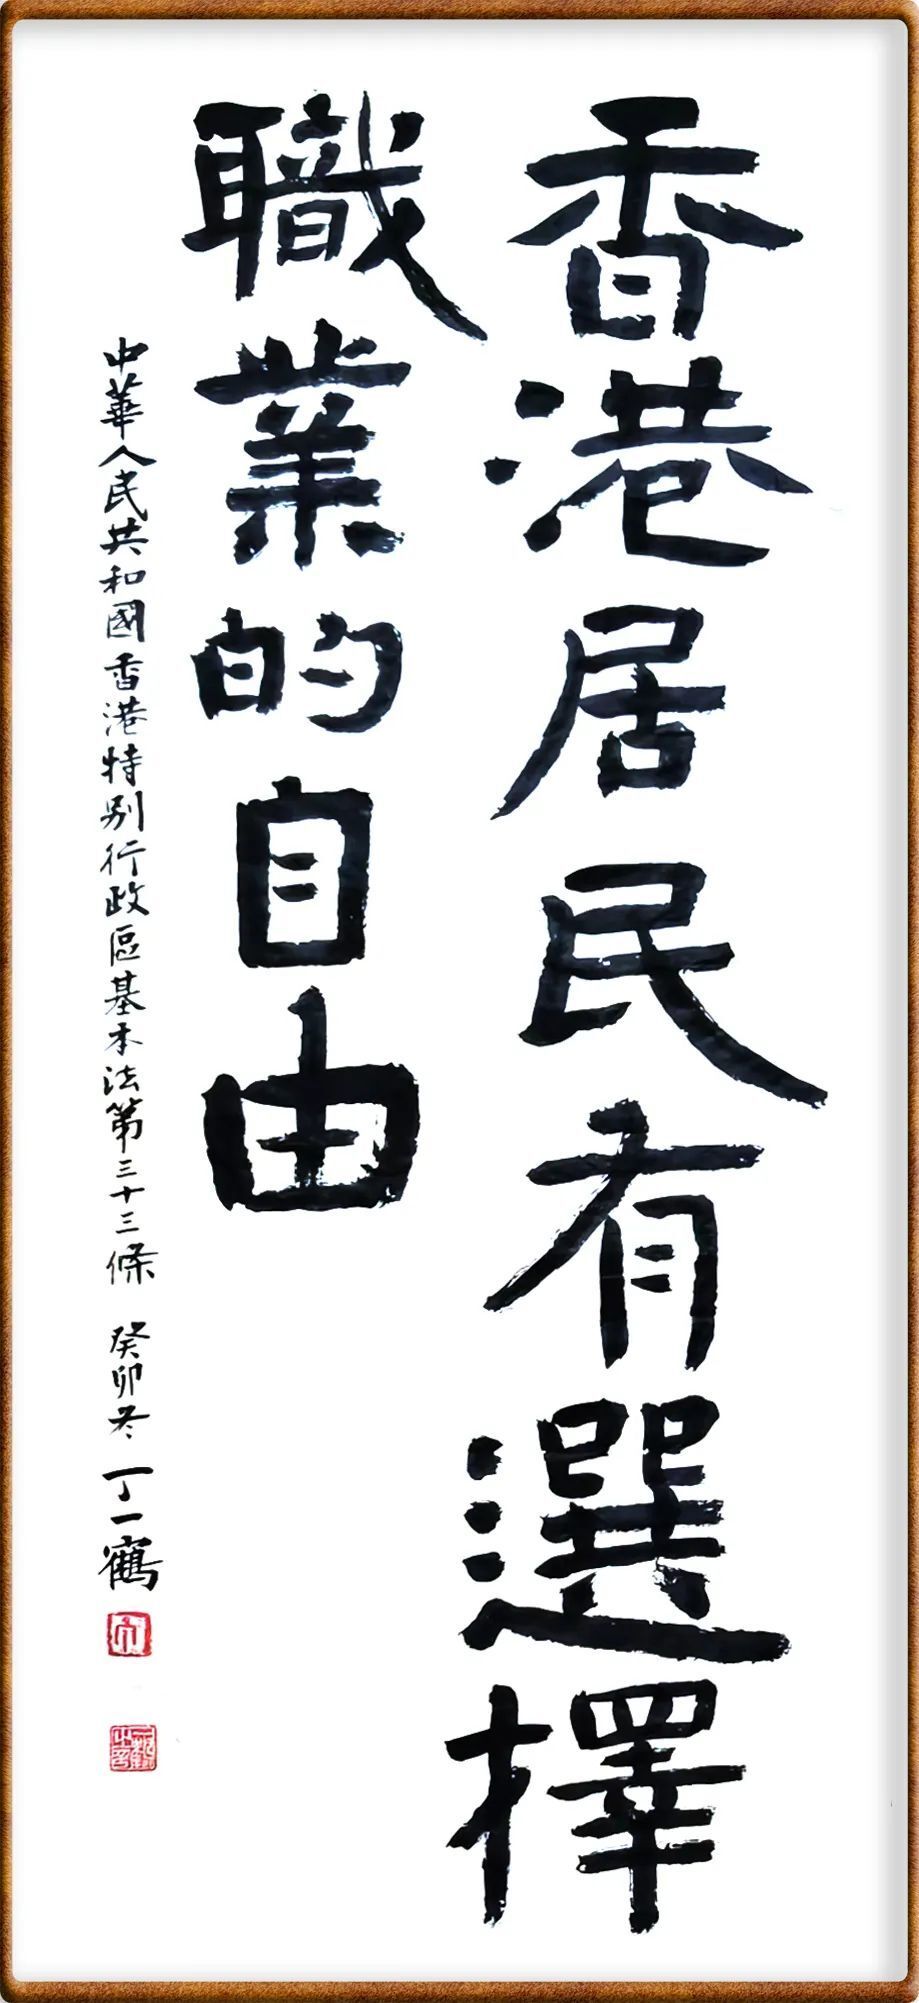 香港居民有選擇
職業的自由
中華人民共和國香港特别行政區基本法第三十三條 癸卯冬 丁一鶴